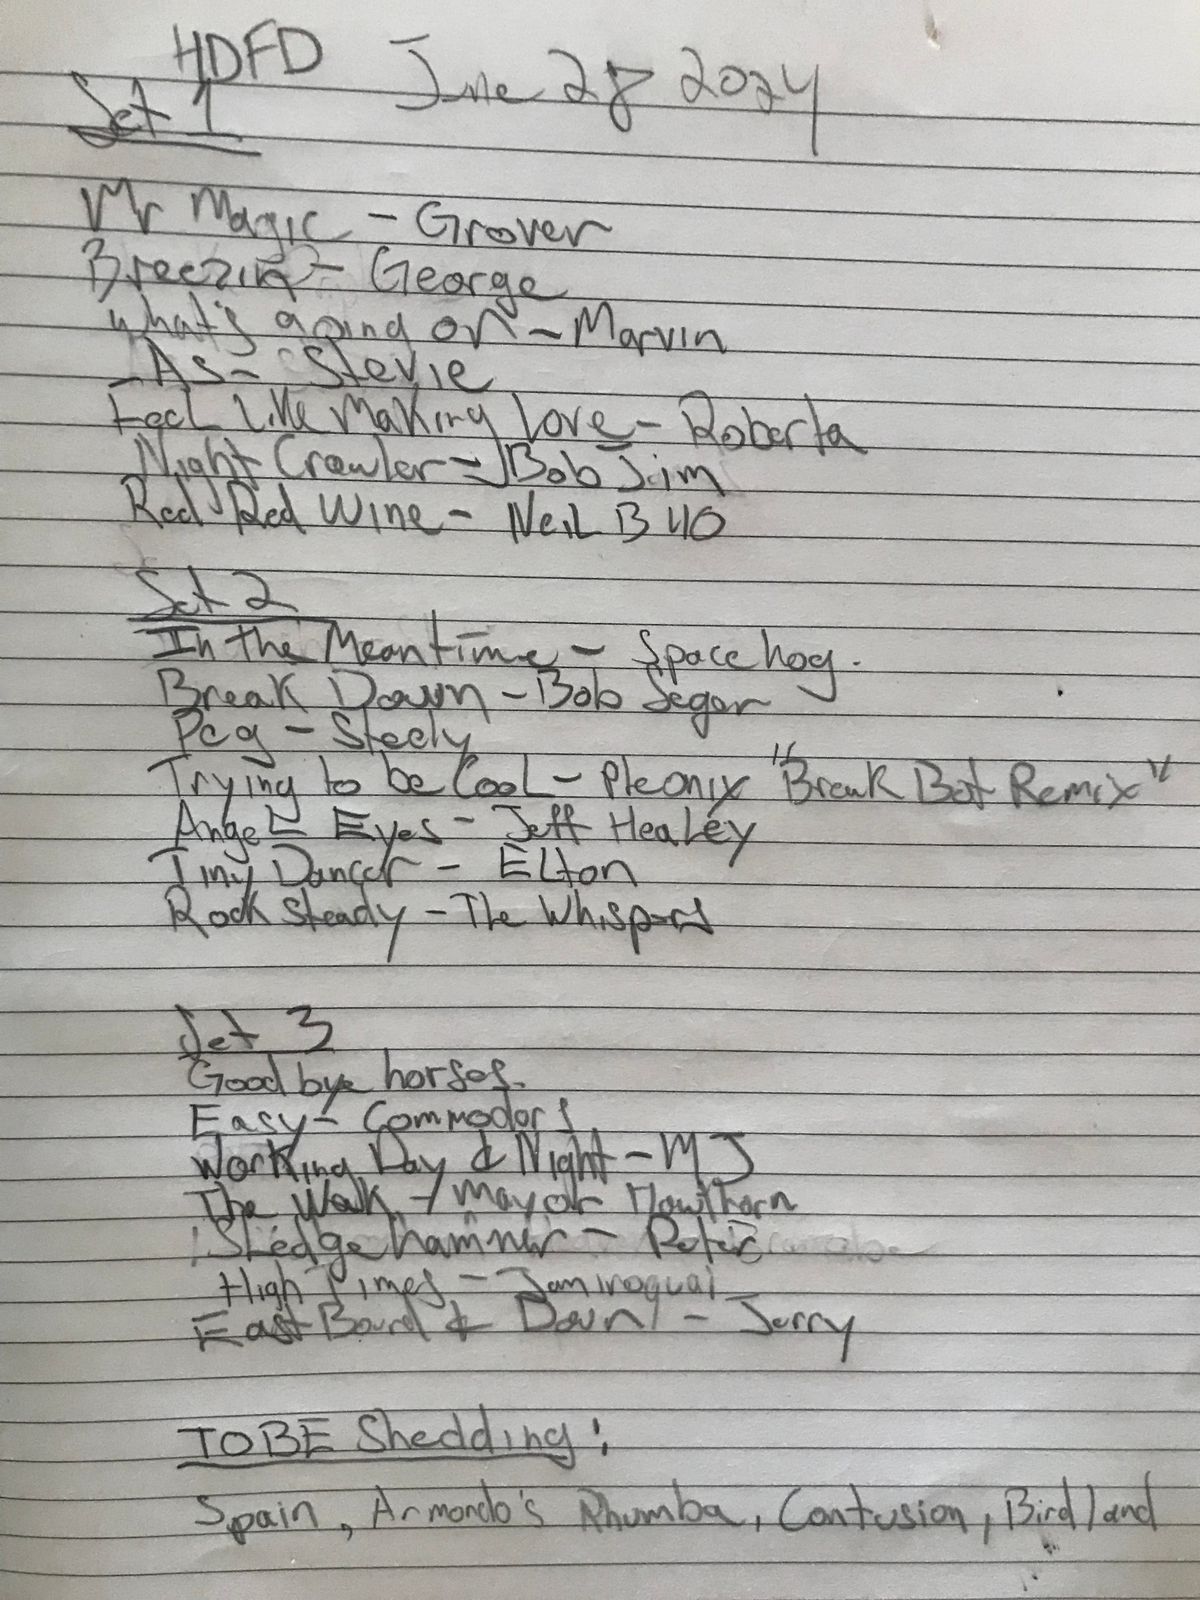 HDFD June 28 2024
Set 1
Mr Magic - Grover
Breezin - George
What's going on - Marvin
- As - Stevie
Feel Like Making Love - Roberta
Night Crawler = Bob Jim
Red Red Wine - Neil B 40
Set 2
In the Meantime - Spacehog.
Break Down - Bob Seger
Peg - Steely
Trying to be Cool - Pheonix "Break Bot Remix"
Angel Eyes - Jeff Healey
Tiny Dancer - Elton
Rock Steady - The Whispers
Set 3
Goodbye horses.
Easy - Commodors
Working Day & Night - MJ
The Walk - Mayor Hawthorn
Sledge hammer - Peter
High Times - Jamiroquai
East Bound & Down - Jerry
TOBE Shedding:
Spain, Armondo's Rhumba, Contusion, Birdland